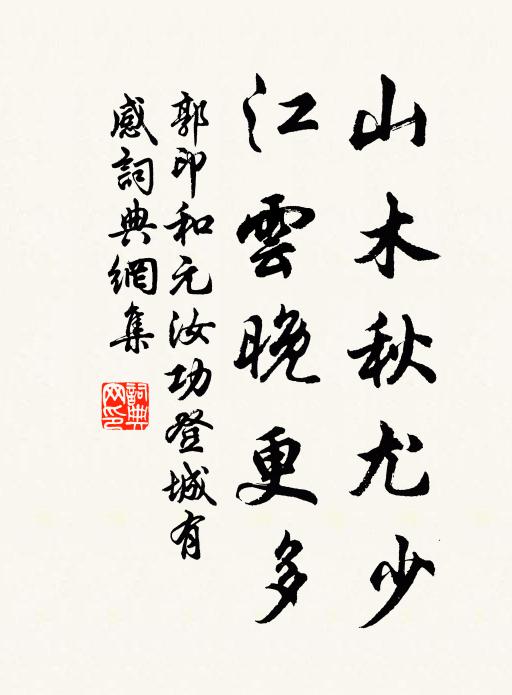 山木秋尤少
江雲晚更多
郭印和元汝功登城有
感詞典網集
詞典
网印